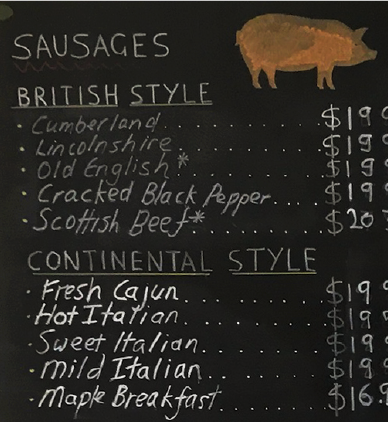 SAUSAGES
BRITISH STYLE
· Cumberland.............$19 9
· Lincolnshire...........$19 9
· Old English*...........$19 9
· Cracked Black Pepper....$19 9
· Scottish Beef*..........$20
CONTINENTAL STYLE
· Fresh Cajun............$19 9
· Hot Italian............$19 9
· Sweet Italian..........$19 9
· Mild Italian...........$19 9
· Maple Breakfast........$16.9